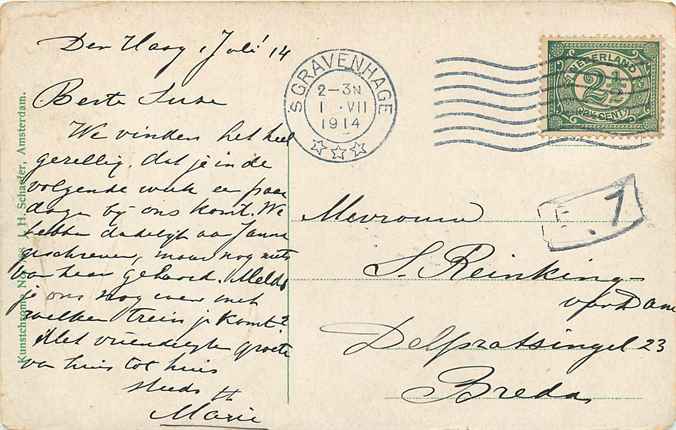 Den Haag 1 Juli '14
Beste Suze
We vinden het heel
gezellig, dat je in de
volgende week een paar
dagen bij ons komt. We
hebben dadelijk aan Janna
geschreven, maar nog niets
van haar gehoord. Meld
je ons nog even met
welken trein je komt?
Met vriendelijke groete
van huis tot huis
steeds
Marie
Kunstchromo No. H. Schaefer, Amsterdam.
'S GRAVENHAGE
2-3N
1 .VII
1914
NEDERLAND
2½
CENT
E.1
Mevrouw
S. Reinking
van Dam
Delpratsingel 23
Breda